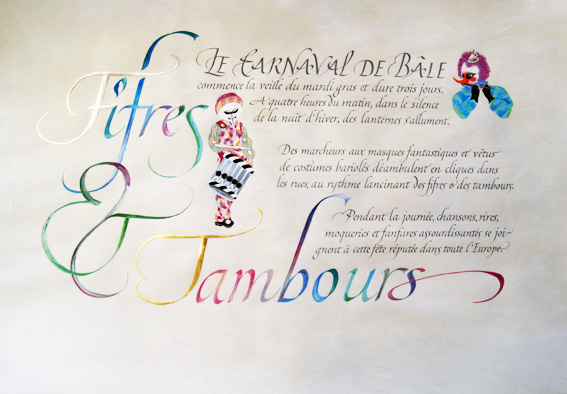 Le Carnaval de Bâle
commence la veille du mardi gras et dure trois jours.
A quatre heures du matin, dans le silence
de la nuit d'hiver, des lanternes s'allument.
Fifres
Des marcheurs aux masques fantastiques et vêtus
de costumes bariolés déambulent en cliques dans
les rues, au rythme lancinant des fifres & des tambours.
&
Pendant la journée, chansons, rires,
moqueries et fanfares assourdissantes se joi-
gnent à cette fête réputée dans toute l'Europe.
Tambours